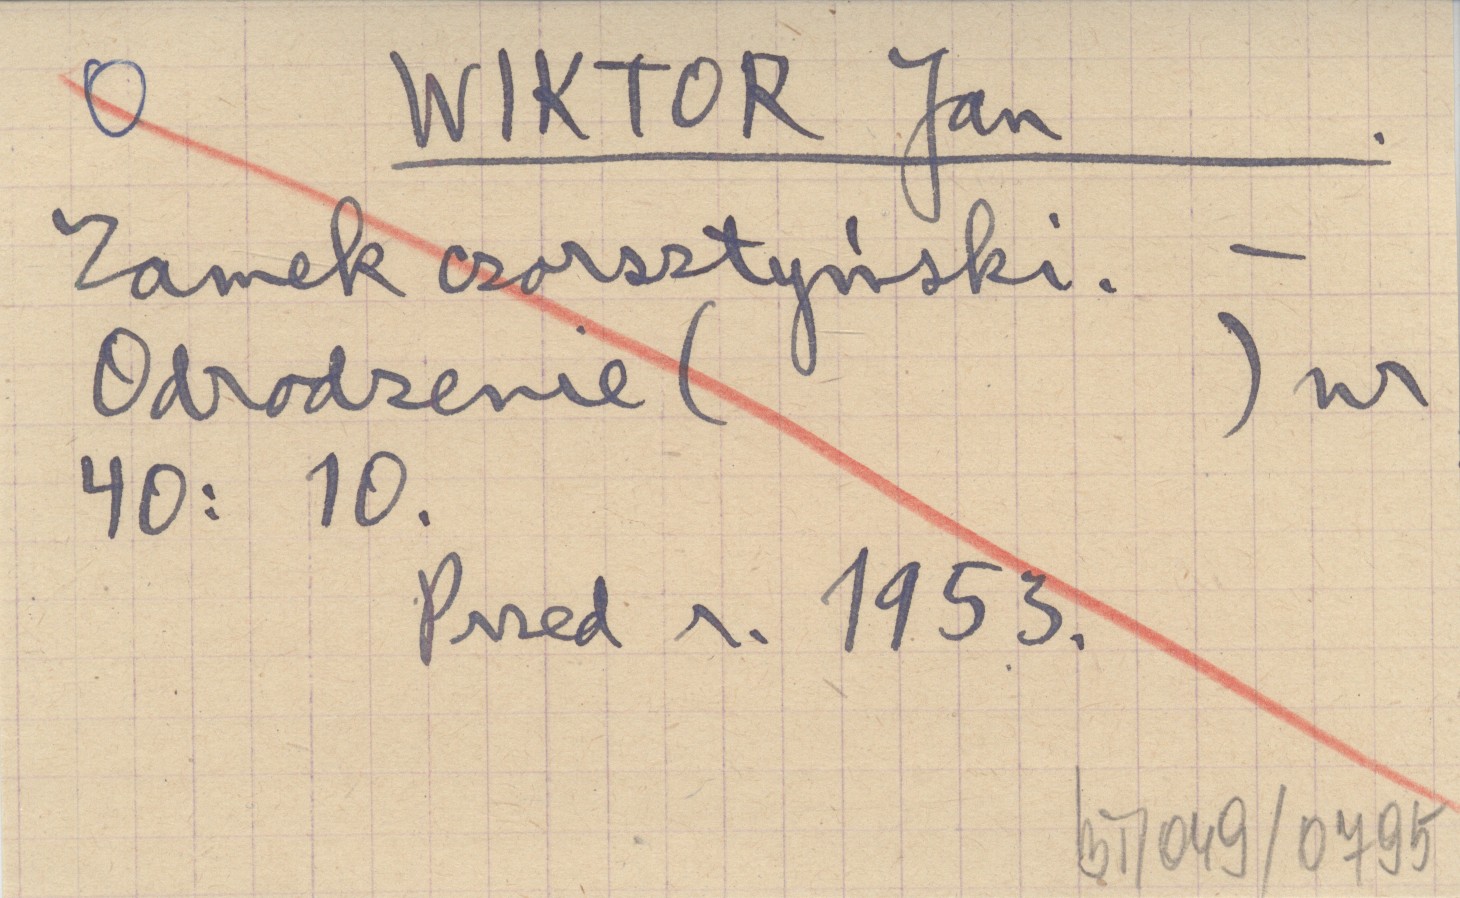 O WIKTOR Jan .
Zamek czorsztyński. —
Odrodzenie ( ) nr
40: 10.
Przed r. 1953.
BT/049/0795